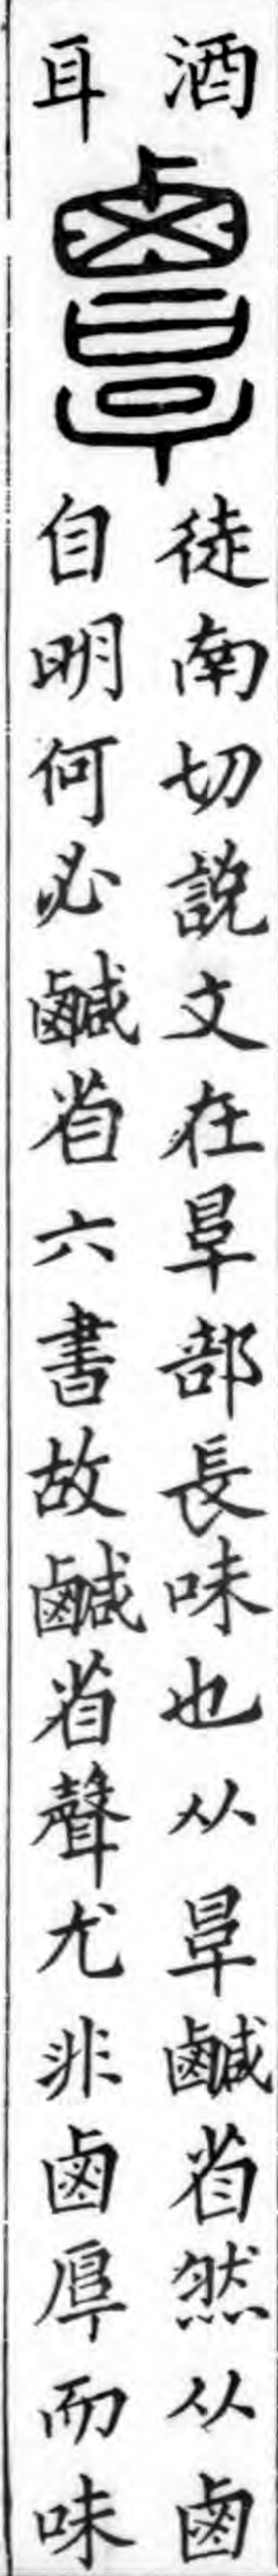 酒
耳
覃
徒南切說文在㫗部長味也从㫗鹹省然从鹵
自明何必鹹省六書故鹹省聲尤非鹵厚而味